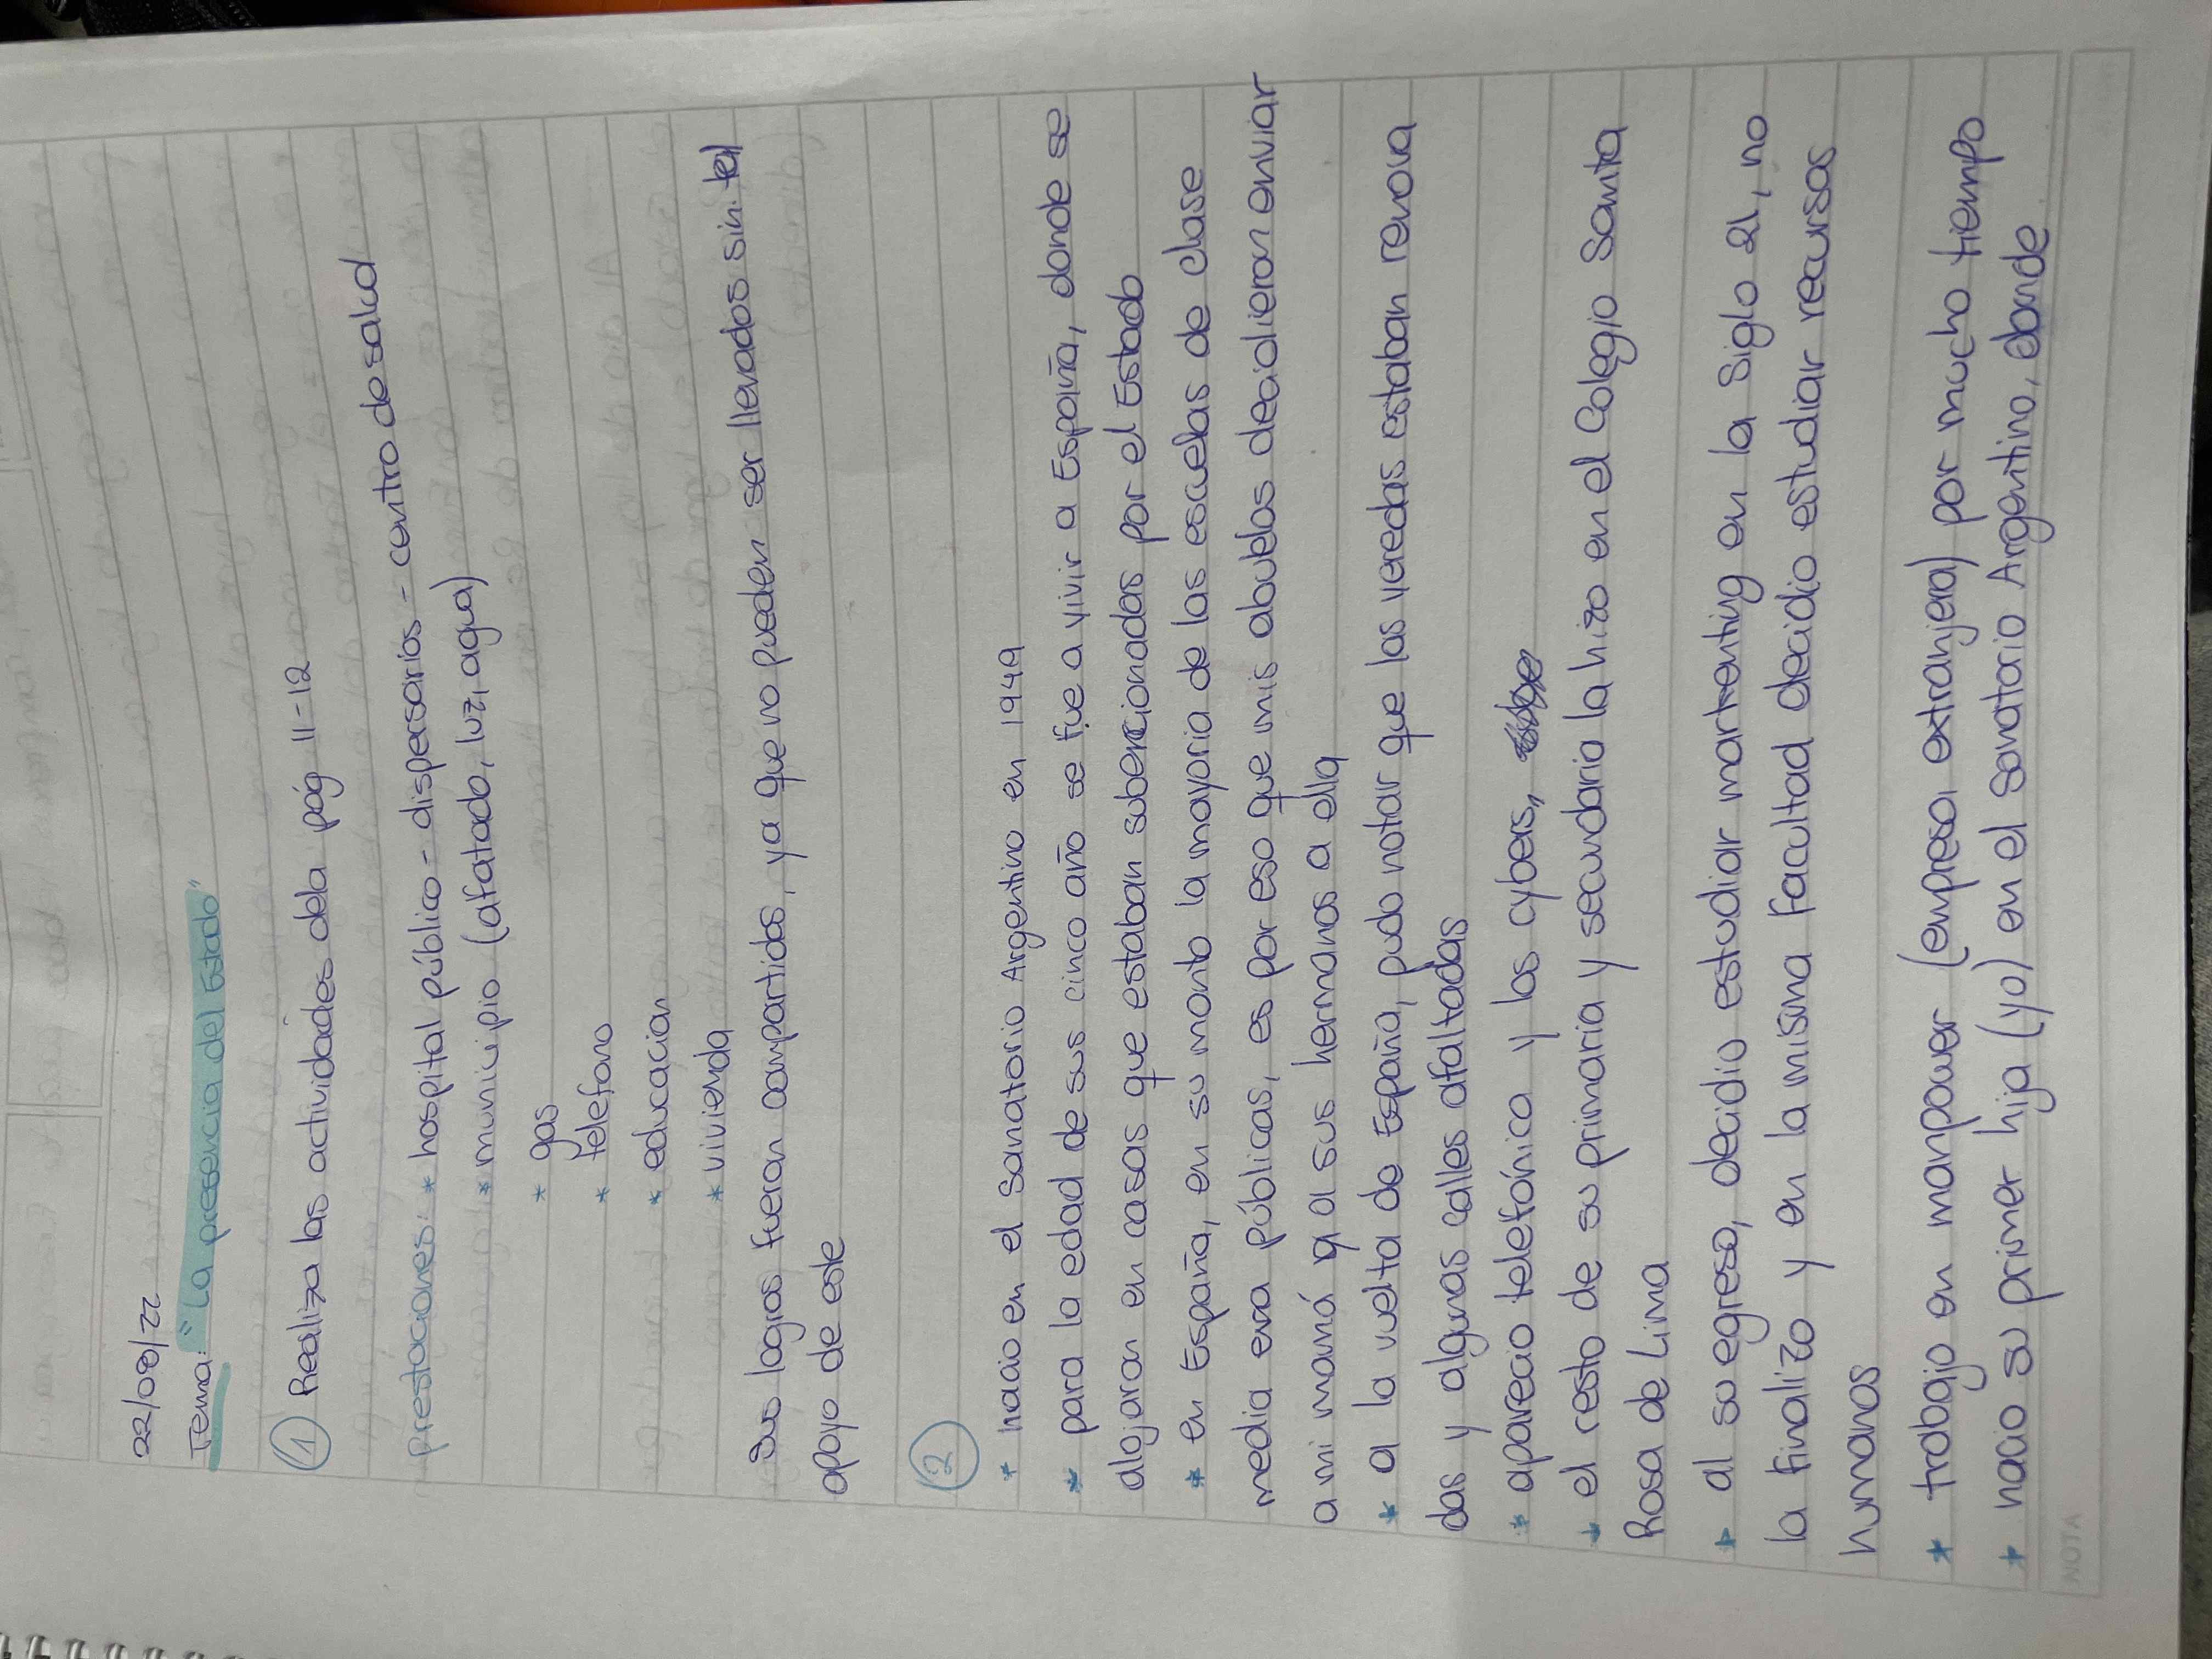 22/08/22
Tema: "La presencia del Estado"
1 Realiza las actividades dela pág 11-12
prestaciones: * hospital público - dispersarios - centro de salud
* municipio (afatado, luz, agua)
* gas
* telefono
* educacion
* vivienda
sus logros fueron compartidos, ya que no pueden ser llevados sin tal
apoyo de este
2
* nacio en el sanatorio Argentino en 1949
* para la edad de sus cinco año se fue a vivir a España, donde se
alojaron en casas que estaban subercionadas por el Estado
* en España, en su monto la mayoria de las escuelas de clase
media era públicas, es por eso que mis abuelos decidieron enviar
a mi mamá y a sus hermanos a ella
* a la vuelta de España, pudo notar que las veredas estaban renova
das y algunas calles afaltadas
* aparecio telefónica y los cybers,
* el resto de su primaria y secundaria la hizo en el Colegio Santa
Rosa de Lima
* al su egreso, decidio estudiar markenting en la Siglo 21, no
la finalizo y en la misma facultad decidio estudiar recursos
humanos
* trabajo en manpower (empresa extranjera) por mucho tiempo
* nacio su primer hija (yo) en el sanatorio Argentino, donde
NOTA